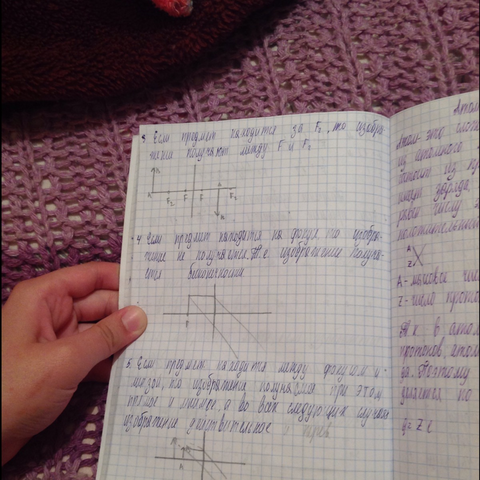 3. Если предмет находится за F₂, то изобра-
жение получают между F и F₂
A
A F₂ F F F₂
A
4. Если предмет находится на фокусе то изобра-
жение не получается. Т.е. изображение получа-
ется бесконечности
F
5. Если предмет находится между фокусом и
линзой, то изображение при этом
прямое и мнимое, а во всех следующих случаях
изображение действительное и
A
Атом
Атом это
из атомного
заряда,
число
положительно
A X
Z
A - массовое число
Z - число прото
в атом
протонов, атом
Поэтому
по
q = Z e